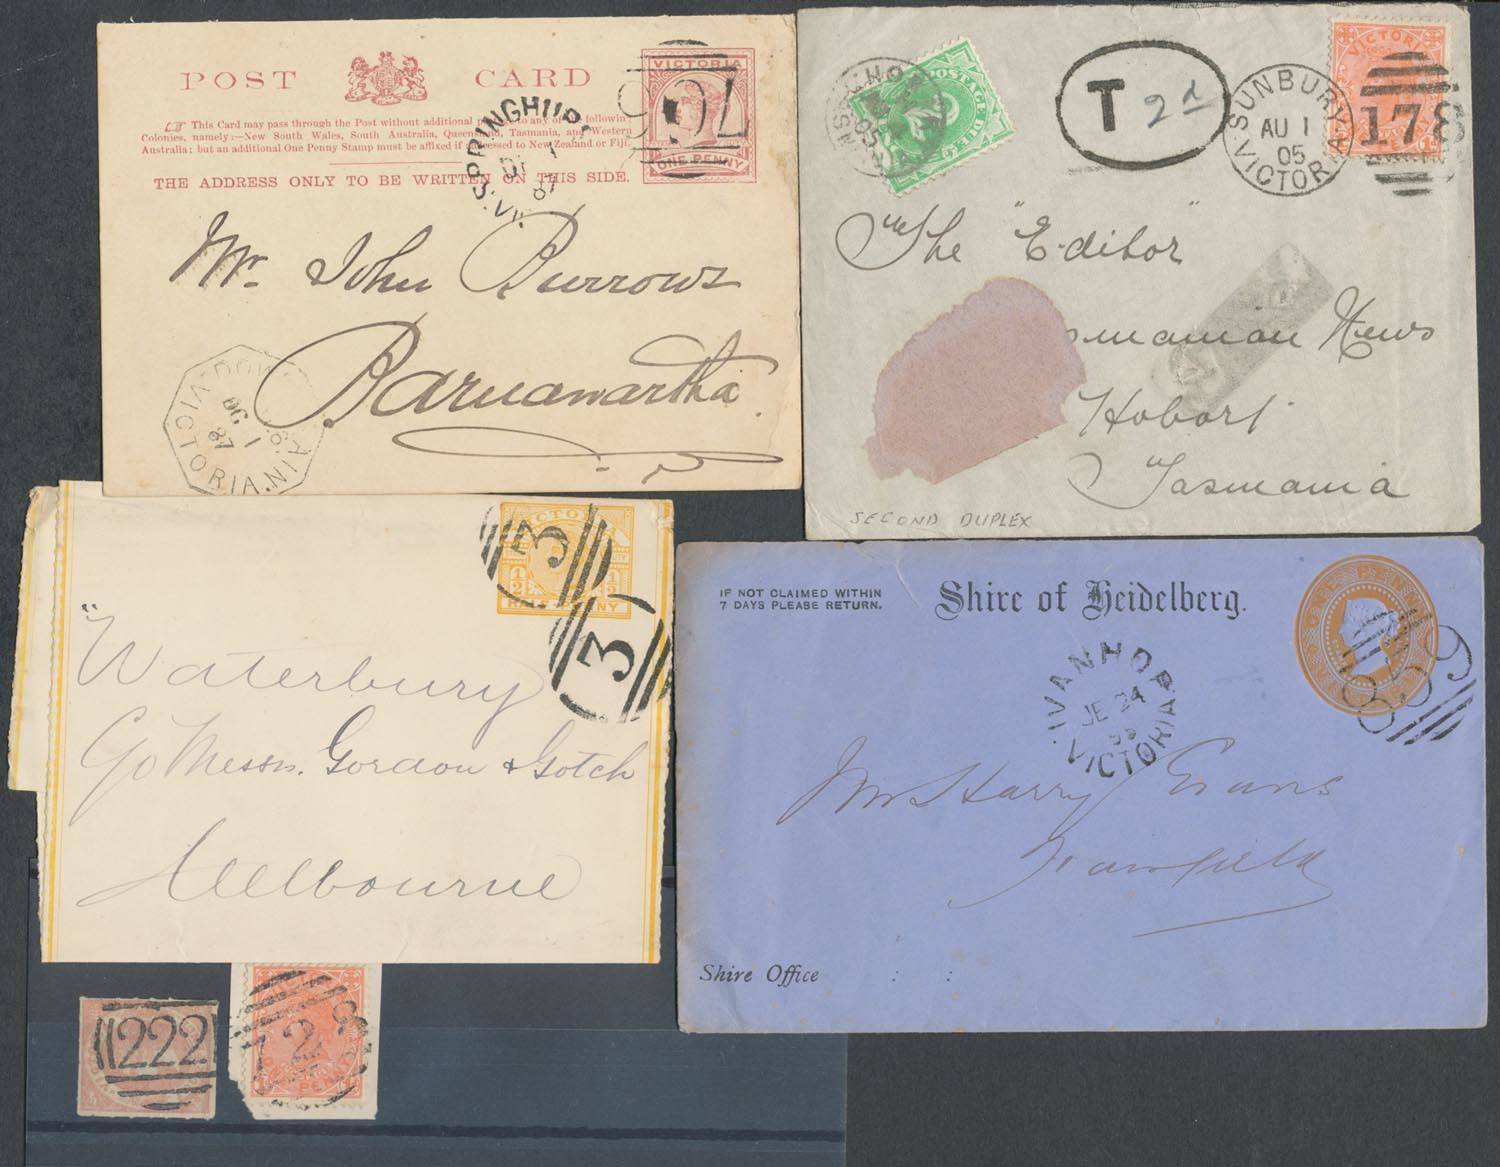 POST CARD
VICTORIA
ONE PENNY
This Card may pass through the Post without additional postage to any of the following
Colonies, namely:—New South Wales, South Australia, Queensland, Tasmania, and Western
Australia; but an additional One Penny Stamp must be affixed if addressed to New Zealand or Fiji.
THE ADDRESS ONLY TO BE WRITTEN ON THIS SIDE.
SPRINGHURST
1
87
907
Mr. John Burrows
Barnawartha.
VICTORIA
1
87
POSTAGE DUE
05
T 2d
SUNBURY
AU 1
05
VICTORIA
VICTORIA
178
The "Editor"
smanian News
Hobart
Tasmania
SECOND DUPLEX
HALF PENNY
1/2 1/2
3
3
"Waterbury
C/o Messrs. Gordon & Gotch
Melbourne
IF NOT CLAIMED WITHIN
7 DAYS PLEASE RETURN.
Shire of Heidelberg.
ONE PENNY
859
IVANHOE
JE 24
VICTORIA
Mr Harry Evans
Shire Office
222
PENNY